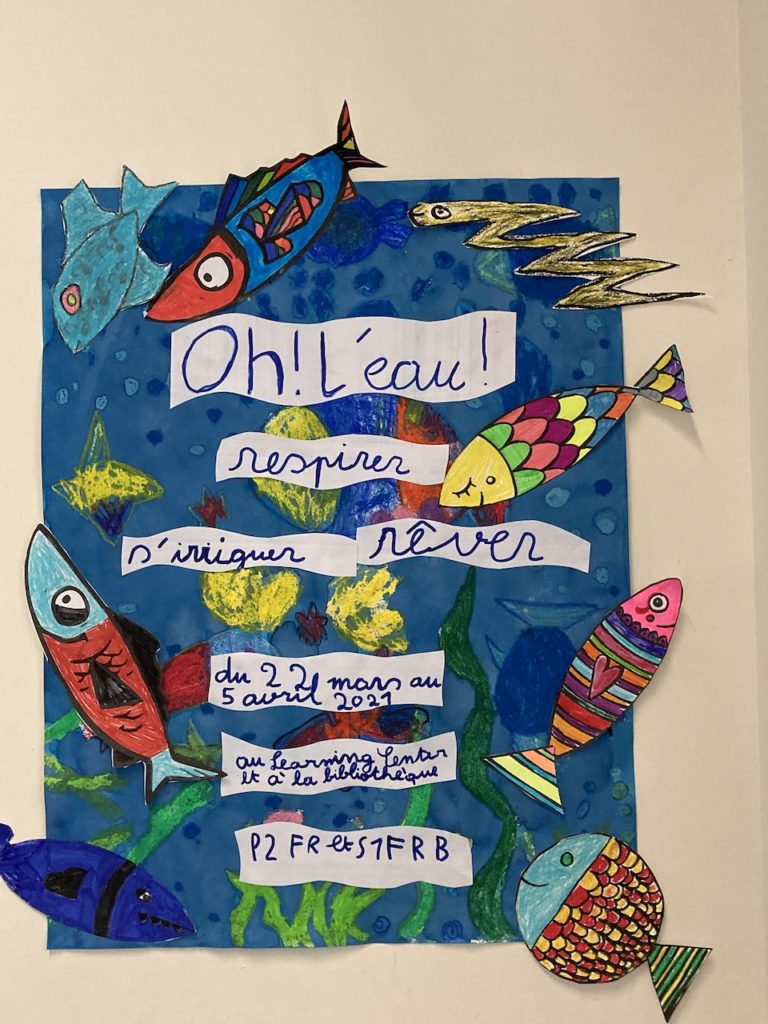 Oh! L'eau!
respirer
s'irriguer rêver
du 22 mars au
5 avril 2021
au Learning Center
et à la bibliothèque
P2 FR et S1FR B